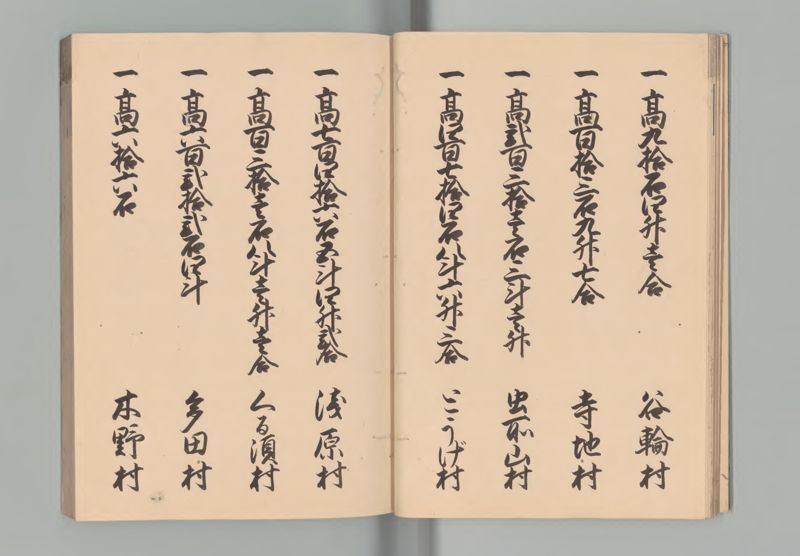 一高九拾石四升壱合 谷輪村
一高百拾三石九升七合 寺地村
一高弐百三拾壱石三斗壱升 虫所山村
一高四百七拾四石八斗六升三合 とうげ村
一高七百四拾六石五斗四升弐合 浅原村
一高百三拾壱石八斗壱升壱合 くる須村
一高六百弐拾弐石四斗 多田村
一高六拾六石 木野村